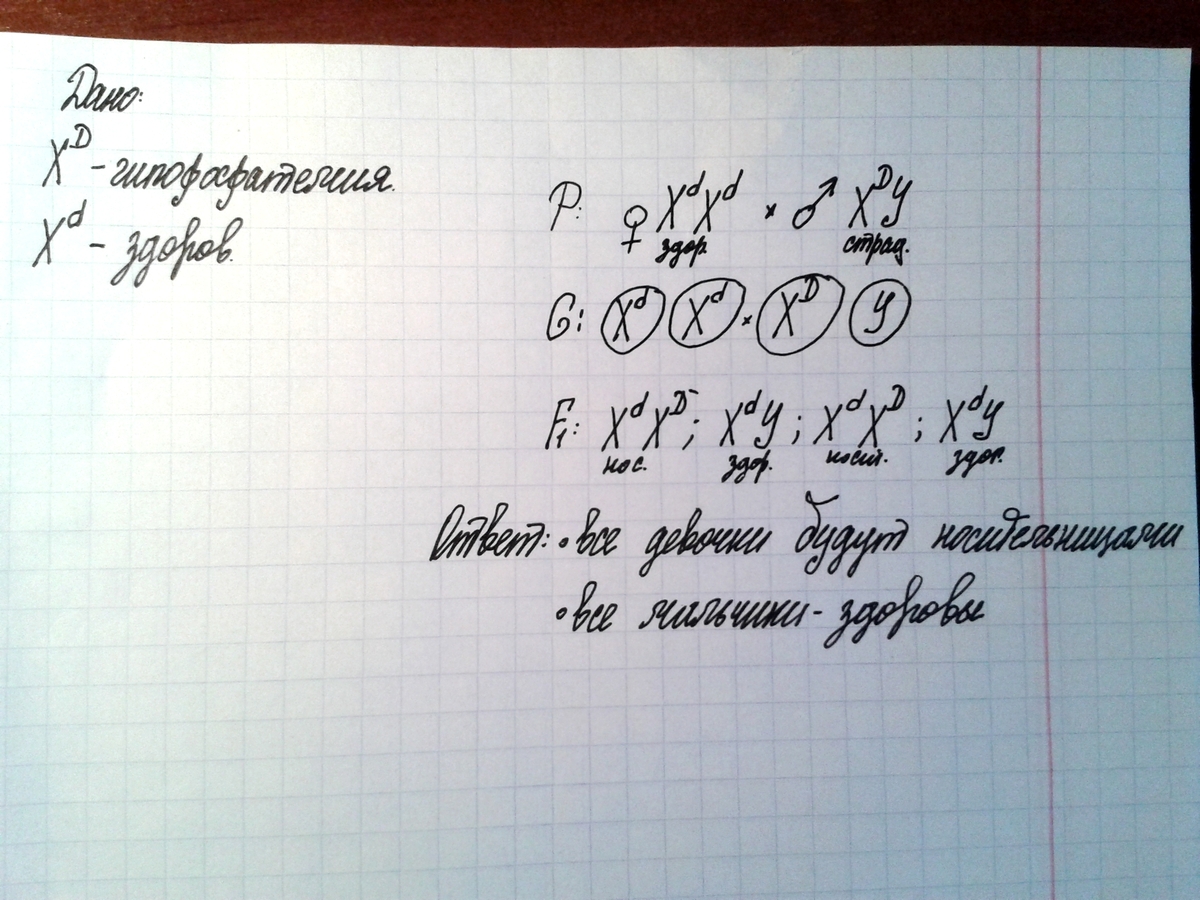 Дано:
X^D – гипофосфатемия.
X^d – здоров.
P: ♀ X^d X^d × ♂ X^D У
здор. страд.
G: X^d X^d × X^D У
F₁: X^d X^D; X^d У; X^d X^D; X^d У
нос. здор. носит. здор.
Ответ: • все девочки будут носительницами
• все мальчики - здоровы